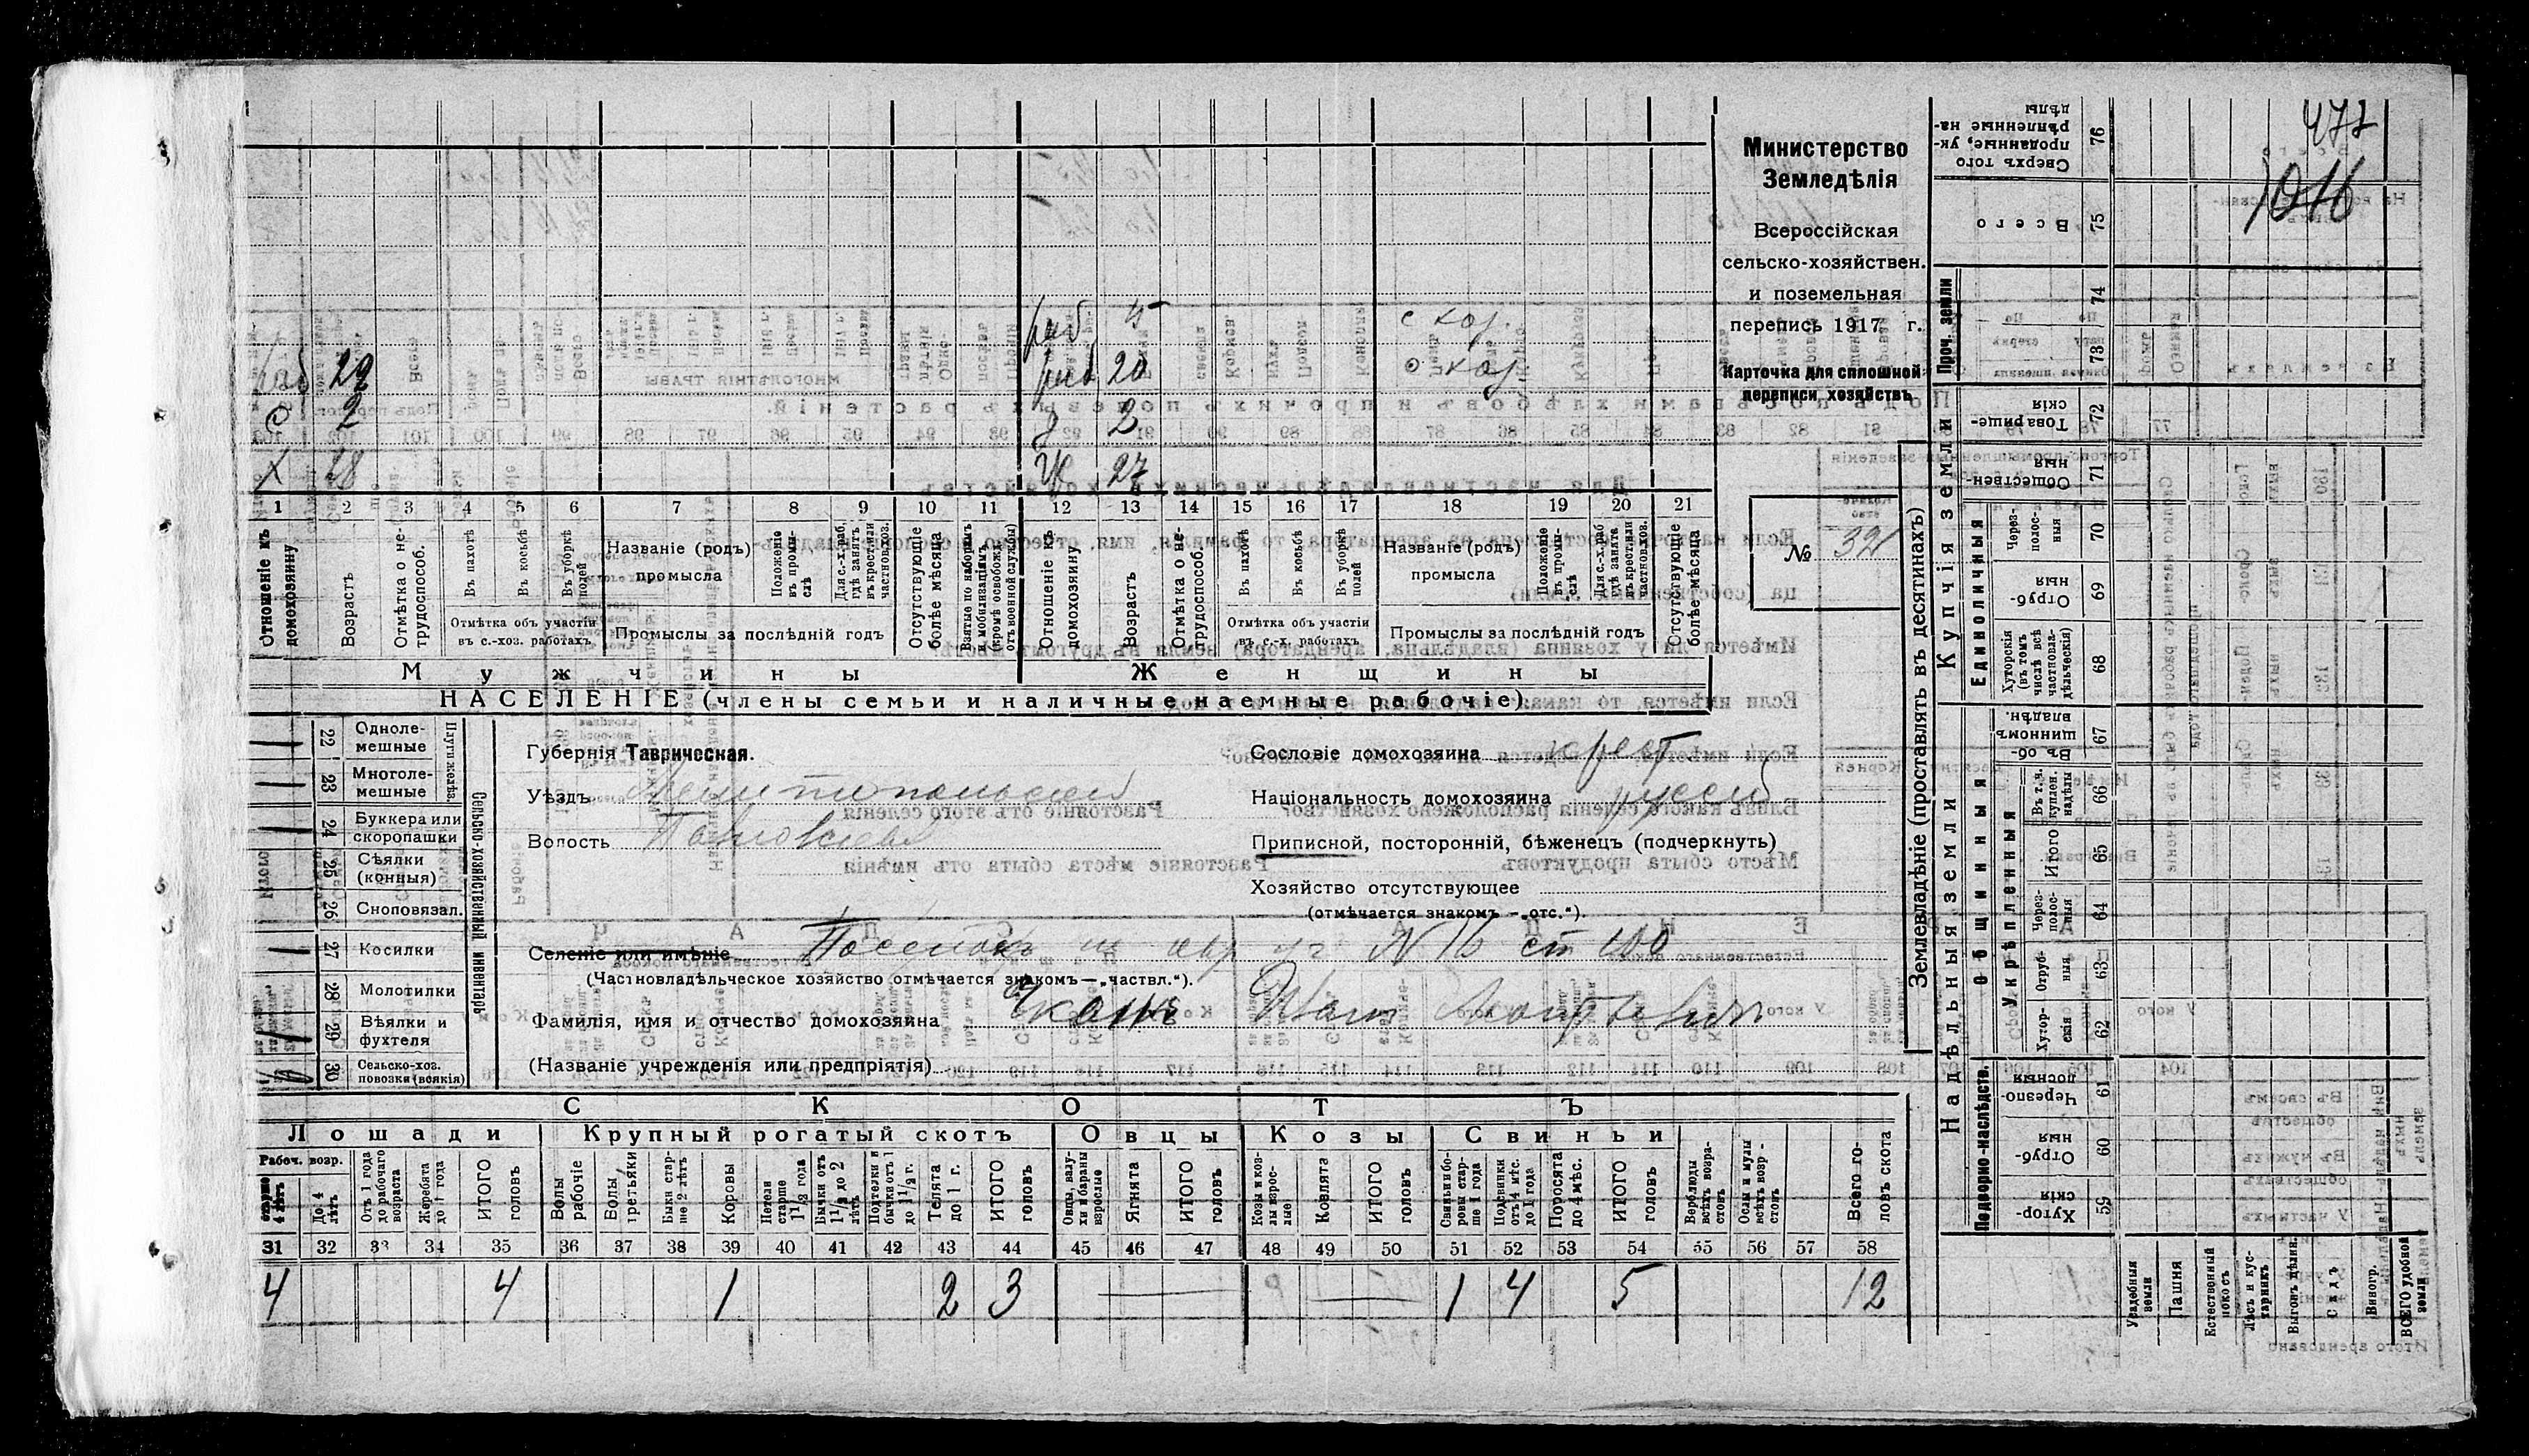 477
1016
Министерство
Земледѣлія
Всероссійская
сельско-хозяйствен.
и поземельная
перепись 1917 г.
Карточка для сплошной
переписи хозяйствъ
№ 321
раб 5 с хоз.
раб 29 раб 20 с хоз.
с 2 д 2
х 28 ж 27
1 2 3 4 5 6 7 8 9 10 11 12 13 14 15 16 17 18 19 20 21
Отношеніе къ домохозяину
Возрастъ
Отмѣтка о нетрудоспособ.
Въ пахотѣ
Въ косьбѣ
Въ уборкѣ полей
Отмѣтка объ участіи въ с.-хоз. работахъ
Названіе (родъ) промысла
Положеніе въ промыслѣ
Для с.-х. раб. гдѣ занятъ въ крест. или частновл. хоз.
Промыслы за послѣдній годъ
Отсутствующіе болѣе мѣсяца
Взятые по наборамъ и мобилизаціямъ (кромѣ освобожд. отъ военной службы)
Отношеніе къ домохозяину
Возрастъ
Отмѣтка о нетрудоспособ.
Въ пахотѣ
Въ косьбѣ
Въ уборкѣ полей
Отмѣтка объ участіи въ с.-х. работахъ
Названіе (родъ) промысла
Положеніе въ промыслѣ
Для с.-х. раб. гдѣ занята въ крест. или частновл. хоз.
Промыслы за послѣдній годъ
Отсутствующіе болѣе мѣсяца
Мужчины Женщины
НАСЕЛЕНІЕ (члены семьи и наличные наемные рабочіе)
Сельско-хозяйственный инвентарь
Плуги желѣз.
22 Однолемешные
23 Многолемешные
24 Буккера или скоропашки
25 Сѣялки (конныя)
26 Сноповязал.
27 Косилки
28 Молотилки
29 Вѣялки и фухтеля
30 Сельско-хоз. повозки (всякія)
Губернія Таврическая.
Уѣздъ Мелитопольский
Волость
Сословіе домохозяина крест
Національность домохозяина русск
Приписной, посторонній, бѣженецъ (подчеркнуть)
Хозяйство отсутствующее
(отмѣчается знакомъ — „отс.“).
Селеніе или имѣніе N 16 ст 100
(Частновладѣльческое хозяйство отмѣчается знакомъ—„частвл.“).
Фамилія, имя и отчество домохозяина
(Названіе учрежденія или предпріятія)
СКОТЪ
Лошади Крупный рогатый скотъ Овцы Козы Свиньи
Рабоч. возр.
старше 4 лѣтъ
До 4 лѣтъ
Отъ 1 года до рабочаго возраста
Жеребята до 1 года
ИТОГО головъ
Волы рабочіе
Волы третьяки
Быки старше 2 лѣтъ
Коровы
Нетели старше 1 1/2 года
Бычки отъ 1 1/2 до 2 лѣтъ
Подтелки и бычки отъ 1 до 1 1/2 г.
Телята до 1 г.
ИТОГО головъ
Овцы, валухи и бараны взрослые
Ягнята
ИТОГО головъ
Козы и козлы взрослые
Козлята
ИТОГО головъ
Свиньи и боровы старше 1 года
Подсвинки отъ 4 мѣс. до 1 года
Поросята до 4 мѣс.
ИТОГО головъ
Верблюды всѣхъ возрастовъ
Ослы и мулы всѣхъ возрстовъ
Всего головъ скота
31 32 33 34 35 36 37 38 39 40 41 42 43 44 45 46 47 48 49 50 51 52 53 54 55 56 57 58
4 4 1 2 3 1 4 5 12
Землевладѣніе (проставлять въ десятинахъ)
Надѣльныя земли
Купчія земли
Проч. земли
Подворно-наслѣдств.
Общинныя
Укрѣпленныя
Единоличныя
Сверхъ того проданные, укрѣпленные надѣлы 76
Всего 75
74
73
Товарищескія 72
Общественныя 71
Черезполосныя 70
Отрубныя 69
Хуторскія (въ томъ числѣ всѣ частновладѣльческія) 68
Въ общинномъ владѣн. 67
Въ т. ч. куплен. надѣлы 66
Итого 65
Черезполосныя 64
Отрубныя 63
Хуторскія 62
Черезполосныя 61
Отрубныя 60
Хуторскія 59
Усадебныя земли
Пашня
Естественный покосъ
Лѣсъ и кустарникъ
Выгонъ дѣлин.
Садъ
Виногр.
ВСЕГО удобной земли